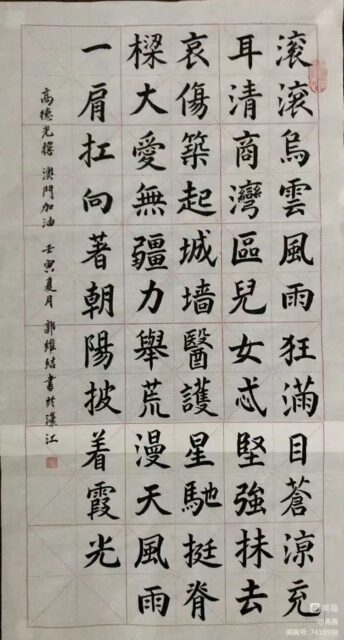 滚滚烏雲風雨狂滿目蒼涼充
耳清商灣區兒女忒堅強抹去
哀傷築起城墙醫護星馳挺脊
樑大愛無疆力舉荒漫天風雨
一肩扛向著朝陽披着霞光
高德光撰 澳門加油 壬寅夏月 郭維結書於濠江
美篇
美篇号: 7419998